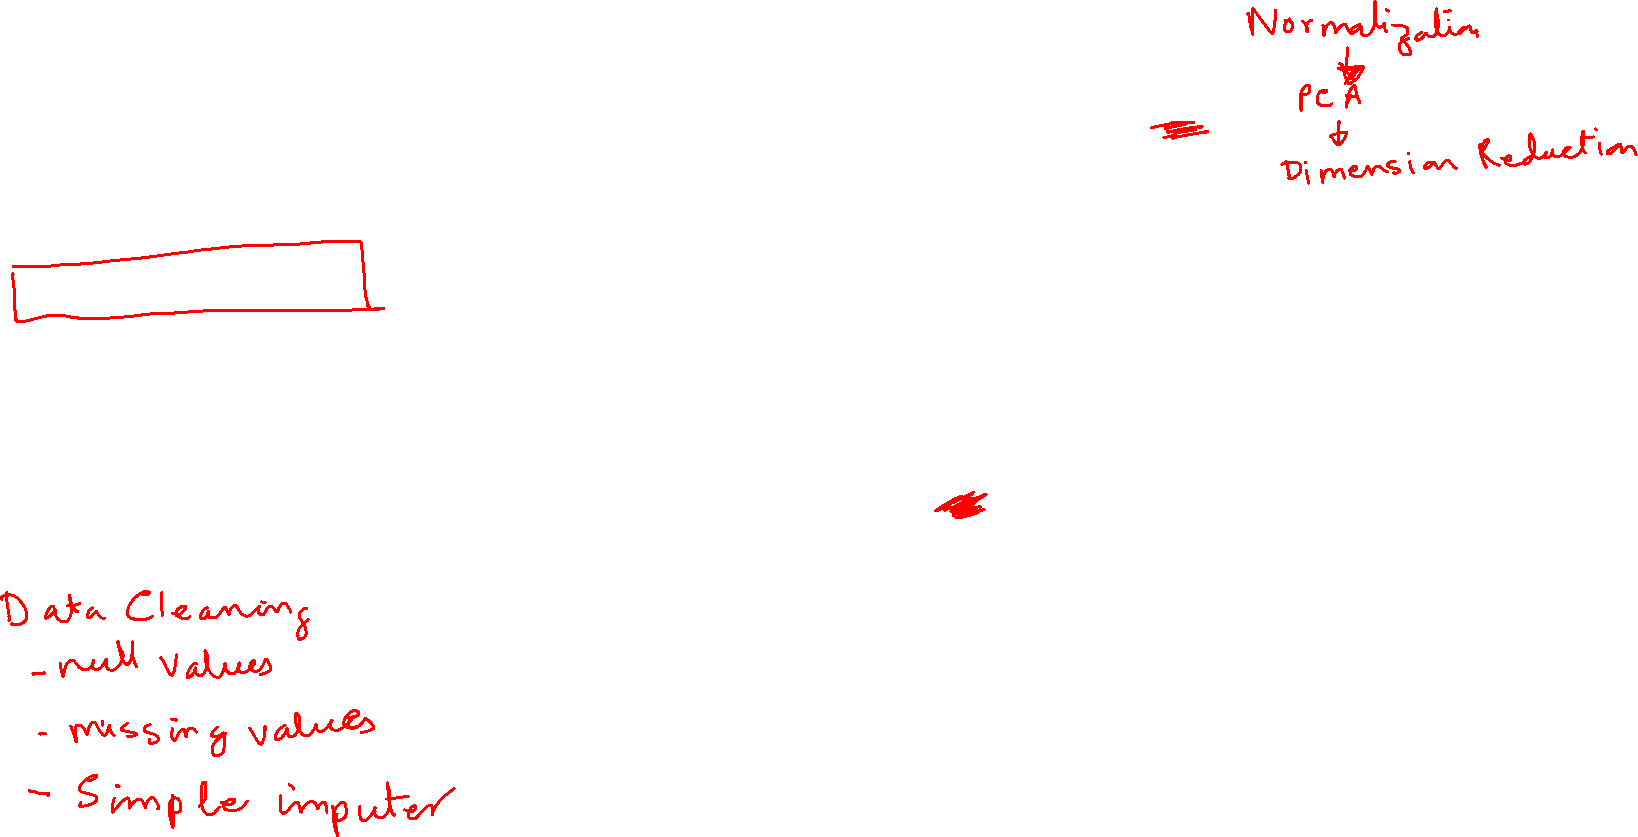 Normalization
PCA
Dimension Reduction
Data Cleaning
- null values
- missing values
- Simple imputer